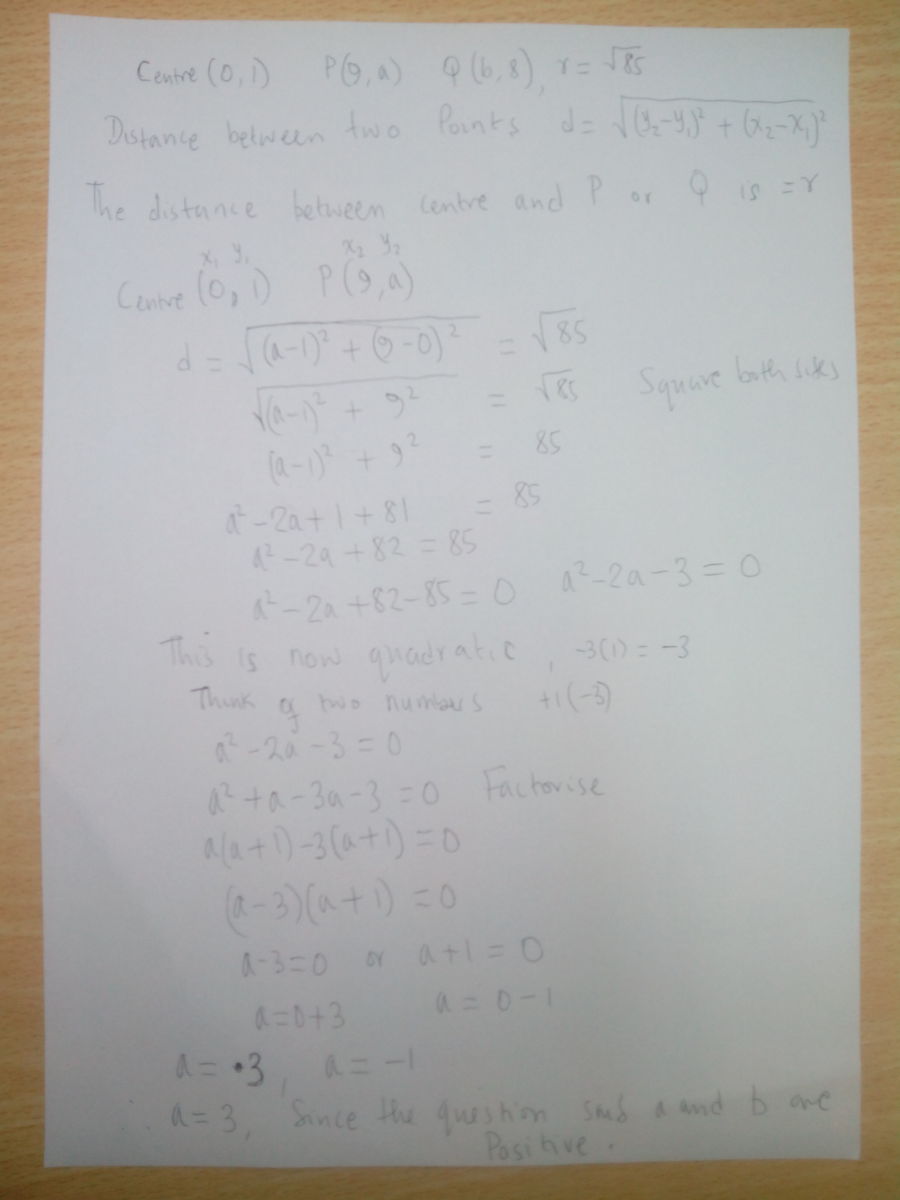 Centre (0, 1) P(9, a) Q(b, 8), r = √85
Distance between two Points d = √(y₂-y₁)² + (x₂-x₁)²
The distance between centre and P or Q is = r
x₁ y₁ x₂ y₂
Centre (0, 1) P(9, a)
d = √(a-1)² + (9-0)² = √85
√(a-1)² + 9² = √85 Square both sides
(a-1)² + 9² = 85
a² - 2a + 1 + 81 = 85
a² - 2a + 82 = 85
a² - 2a + 82 - 85 = 0 a² - 2a - 3 = 0
This is now quadratic, -3(1) = -3
Think of two numbers +1(-3)
a² - 2a - 3 = 0
a² + a - 3a - 3 = 0 Factorise
a(a+1) - 3(a+1) = 0
(a-3)(a+1) = 0
a-3=0 or a+1 = 0
a=0+3 a = 0-1
a = 3, a = -1
∴ a = 3, Since the question said a and b are
Positive.